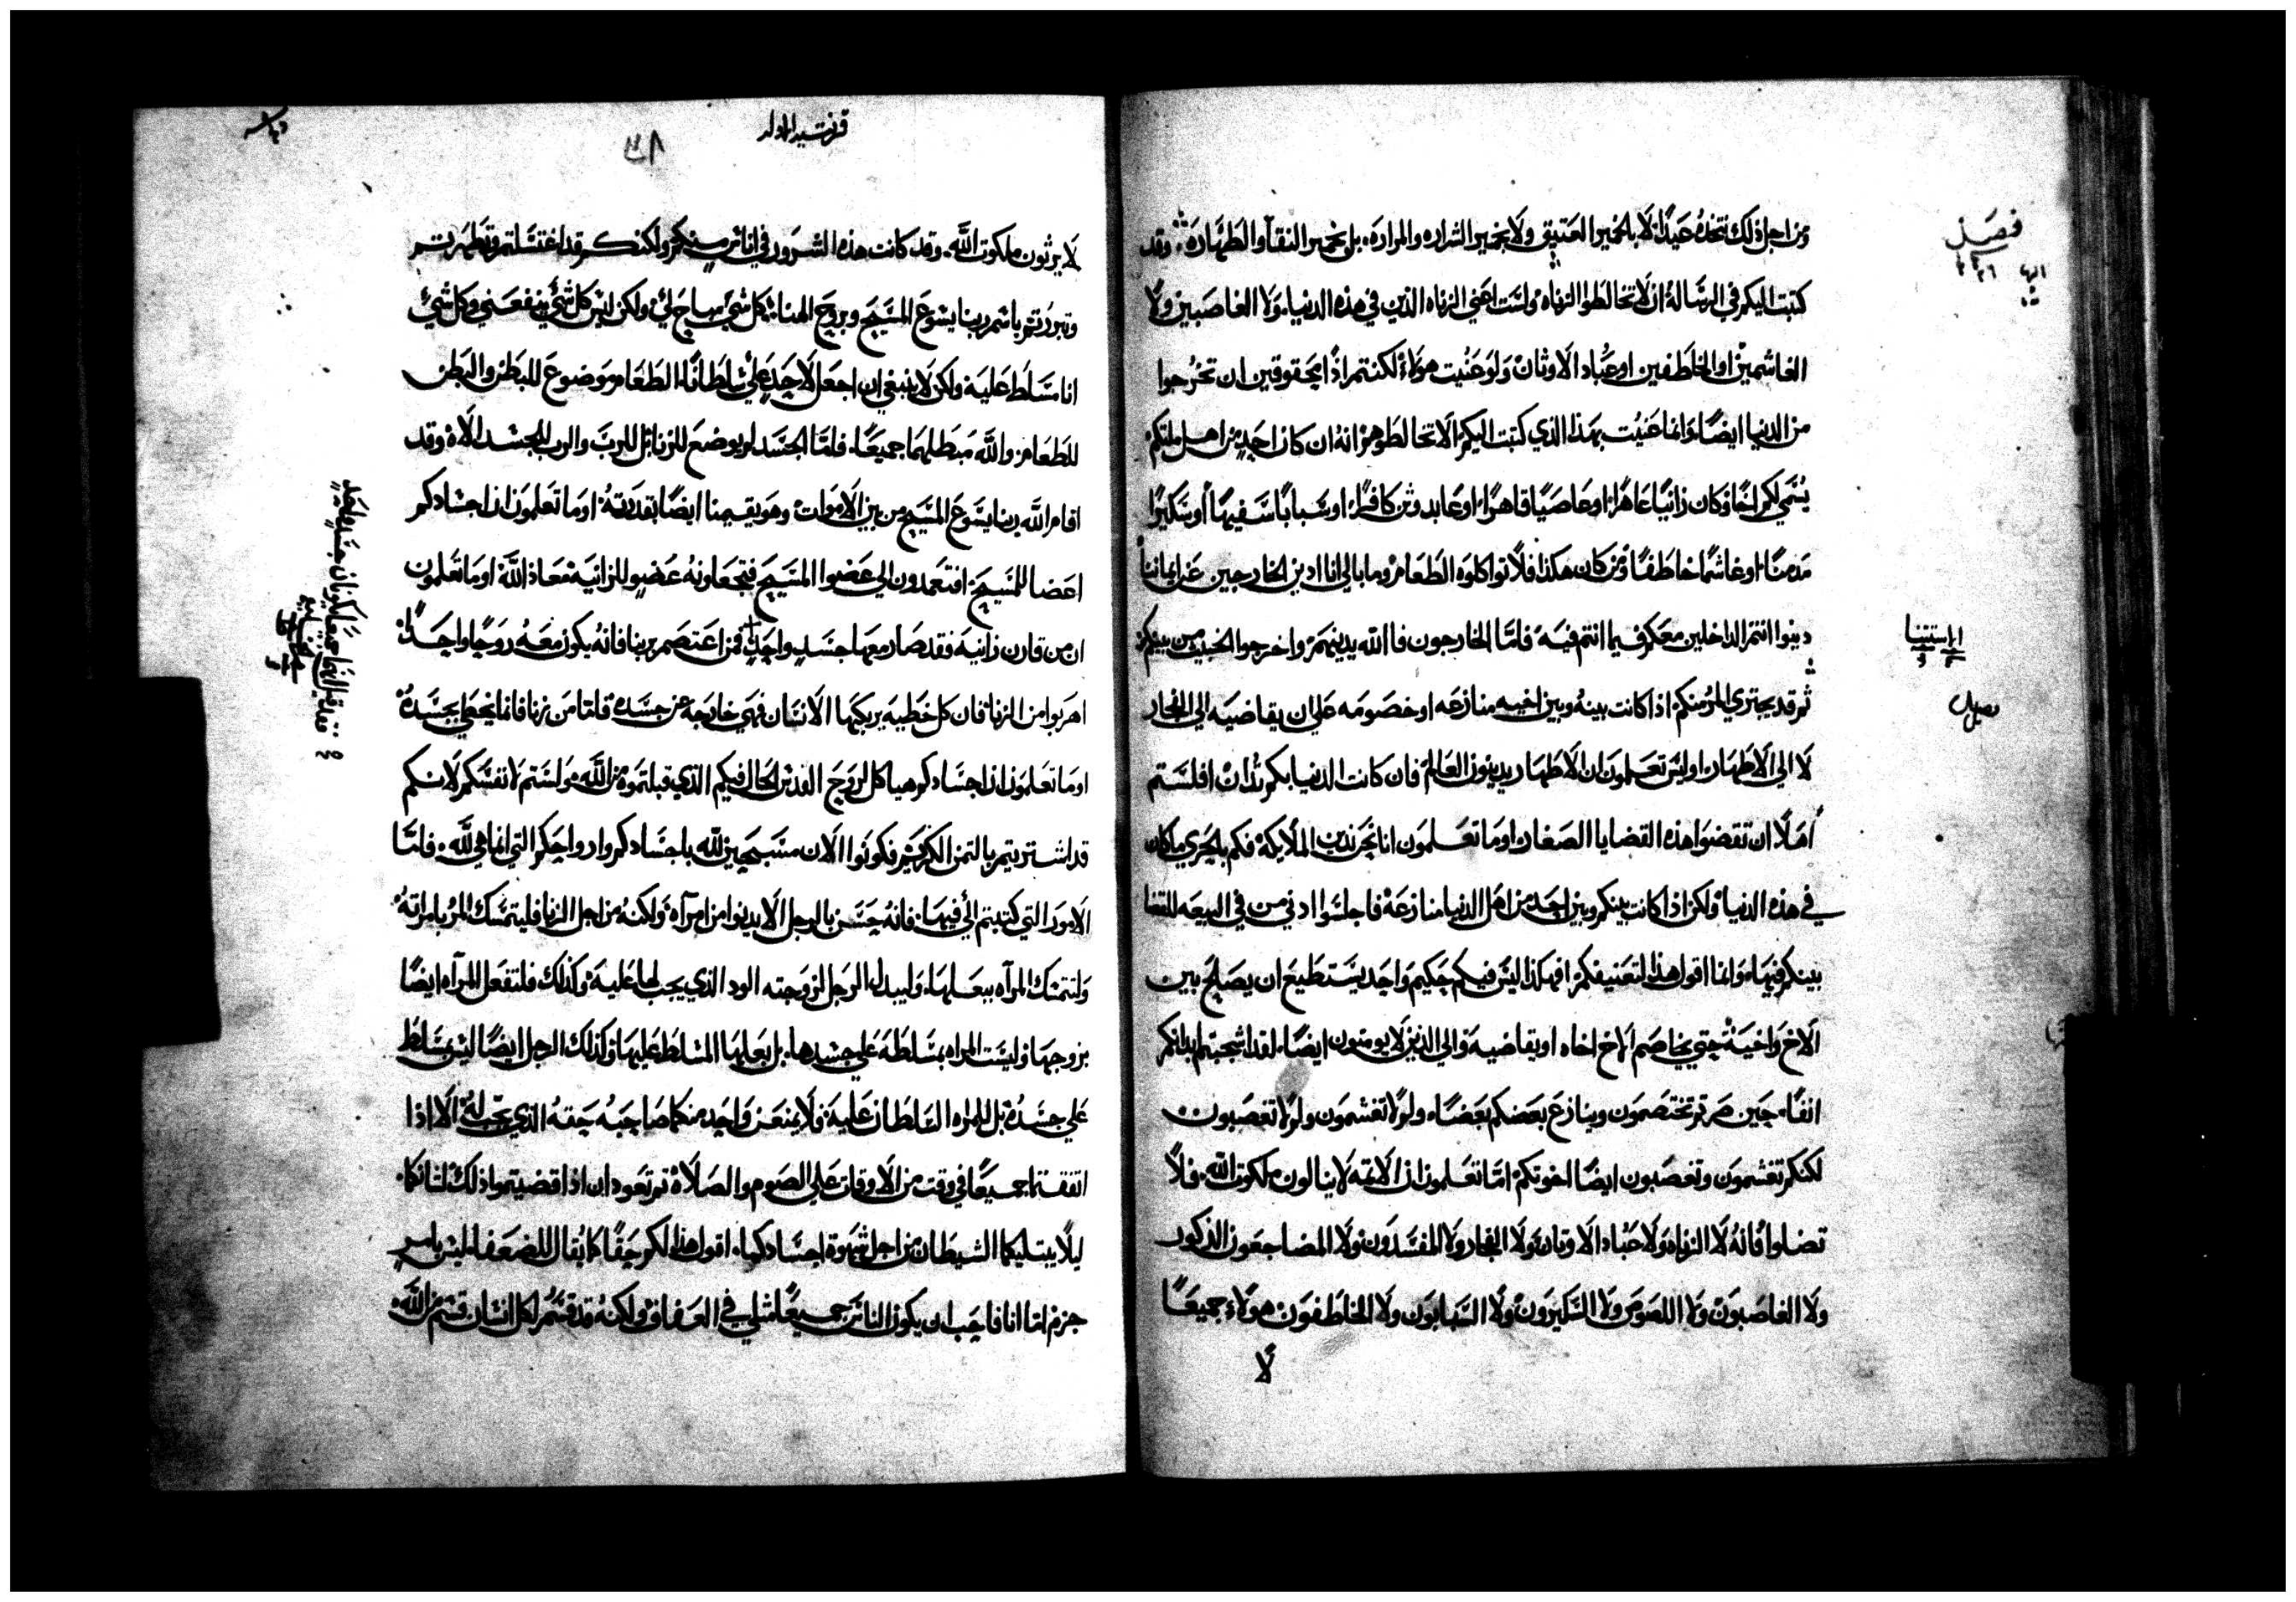 ومن اجل ذلك نتخذه عيدًا لا بالخمير العتيق ولا بخمير الشراره والمراره بل بخمير النقآ والطهاره وقد
كتبت اليكم في الرساله ان لا تخالطوا الزناه ولست اعني الزناه الذين في هذه الدنيا ولا الغاصبين ولا
الغاشمين او الخاطفين او عُبّاد الاوثان ولو عنيت هولاء لكنتم اذًا محقوقين ان تخرجوا
من الدنيا ايضًا وانما عنيت بهذا الذي كتبت اليكم الا تخالطوهم انه ان كان احدٍ من اهل ملتكم
يُسَمي لكم اخًا وكان زانيًا عاهرًا او عاصيًا قاهرًا او عابد وثن كافرًا او سبابًا سفيهًا أو سكيرًا
مدمنًا او غاشمًا خاطفًا فمن كان هكذا فلا تواكلوه الطعام وما بالي انا ادين الخارجين عن ايماننا
دينوا انتم الداخلين معكم فيما انتم فيه فامّا الخارجون فالله يدينهم واخرجوا الخبيث من بينكم
ثم قد يجتري المر منكم اذا كانت بينه وبين اخيه منازعه او خصومه على ان يقاضيه الي الفجار
لا الى الاطهار اوليس تعلمون ان الاطهار يدينون العالم فان كانت الدنيا بكم تُدان افلستم
أهلًا ان تقضوا هذه القضايا الصغار اوما تعلمون انا نحن ندين الملايكة فكم بالحري ما كان
في هذه الدنيا ولكن اذا كانت بينكم وبين احد من اهل الدنيا منازعة فاجلسوا ادني من في البيعه للقضا
بينكم فيها وانما اقول هذا لتعنيفكم افهكذا ليس فيكم حكيم واحد يستطيع ان يصلح بين
الاخ واخيه حتي يخاصم الاخ اخاه او يقاضيه والي الذين لا يومنون ايضًا لقد اشجبتم ابدانكم
انفًا حين صرتم تختصمون وينازع بعضكم بعضًا ولولا تغشمون ولولا تغصبون
لكنكم تغشمون وتغصبون ايضًا اخوتكم امّا تعلمون ان الاثمه لا ينالون ملكوت الله فلا
تضلوا فانه لا الزناه ولا عبّاد الاوثان ولا الفجار ولا المفسدون ولا المضاجعون الذكور
ولا الغاصبون ولا اللصوص ولا السكيرون ولا السبابون ولا الخاطفون هولاء جميعًا
لا
فصل
استثنا
قرنتيه الاوله
لا يرثون ملكوت الله وقد كانت هذه الشرور في اناس منكم ولكنكم قد اغتسلتم وتطهرتم
وتبررتم باسم ربنا يسوع المسيح وبروح الهنا كل شي مباح لي ولكن ليس كل شي ينفعني وكل شي
انا مسلط عليه ولكن لا ينبغي ان اجعل لاحدٍ علي سلطانًا الطعام موضوع للبطن والبطن
للطعام والله مبطلهما جميعًا فامّا الجسد لم يوضع للزنا بل للرب والرب للجسد الاه وقد
اقام الله ربنا يسوع المسيح من بين الاموات وهو يقيمنا ايضًا بقدرته اوما تعلمون ان اجسادكم
اعضا للمسيح افتعمدون الي عضو المسيح فتجعلونه عضو للزانيه معاذ الله اوما تعلمون
ان من قارن زانيه فقد صار معها جسد واحدٍ فمن اعتصم بربنا فانه يكون معه روحًا واحدًا
اهربوا من الزنا فان كل خطيه يرتكبها الانسان فهي خارجة عن جسده فاما من زنا فانما يخطي بجسده
اوما تعلمون ان اجسادكم هياكل لروح القدس الحال فيكم الذي قبلتموه من الله ولستم لانفسكم لانكم
قد اشتريتم بالثمن الكريم فكونوا الان مسبحين لله باجسادكم وارواحكم التي انما هي لله فامّا
الامور التي كتبتم الي فيها فانه حَسَن بالرجل الا يدنوا من امرآه ولكنه من اجل الزنا فليتمسك المر بامراته
ولتتمسك المرآه ببعلها وليبدل الرجل لزوجته الود الذي يجب لها عليه وكذلك فلتفعل المرآه ايضًا
بزوجها وليست المراه بمسلطه علي جسدها بل بعلها المسلط عليها وكذلك الرجل ايضًا ليس بمسلط
علي جسده بل للمراه السلطان عليه فلا يمنعن واحد منكما صاحبه حقه الذي يجب له الا اذا
اتفقتما جميعًا في وقت من الاوقات علي الصوم والصلاه ثم تعودان اذا قضيتموا ذلك لشانكما
ليلا يبتليكما الشيطان من اجل شهوة اجسادكما اقول هذا لكم حقًا كما يُقال للضعفا ليس بامرٍ
جزم اما انا فاحب ان يكون الناس جميعًا مثلي في العفاف ولكنه قد قسم لكل انسان قسم من الله